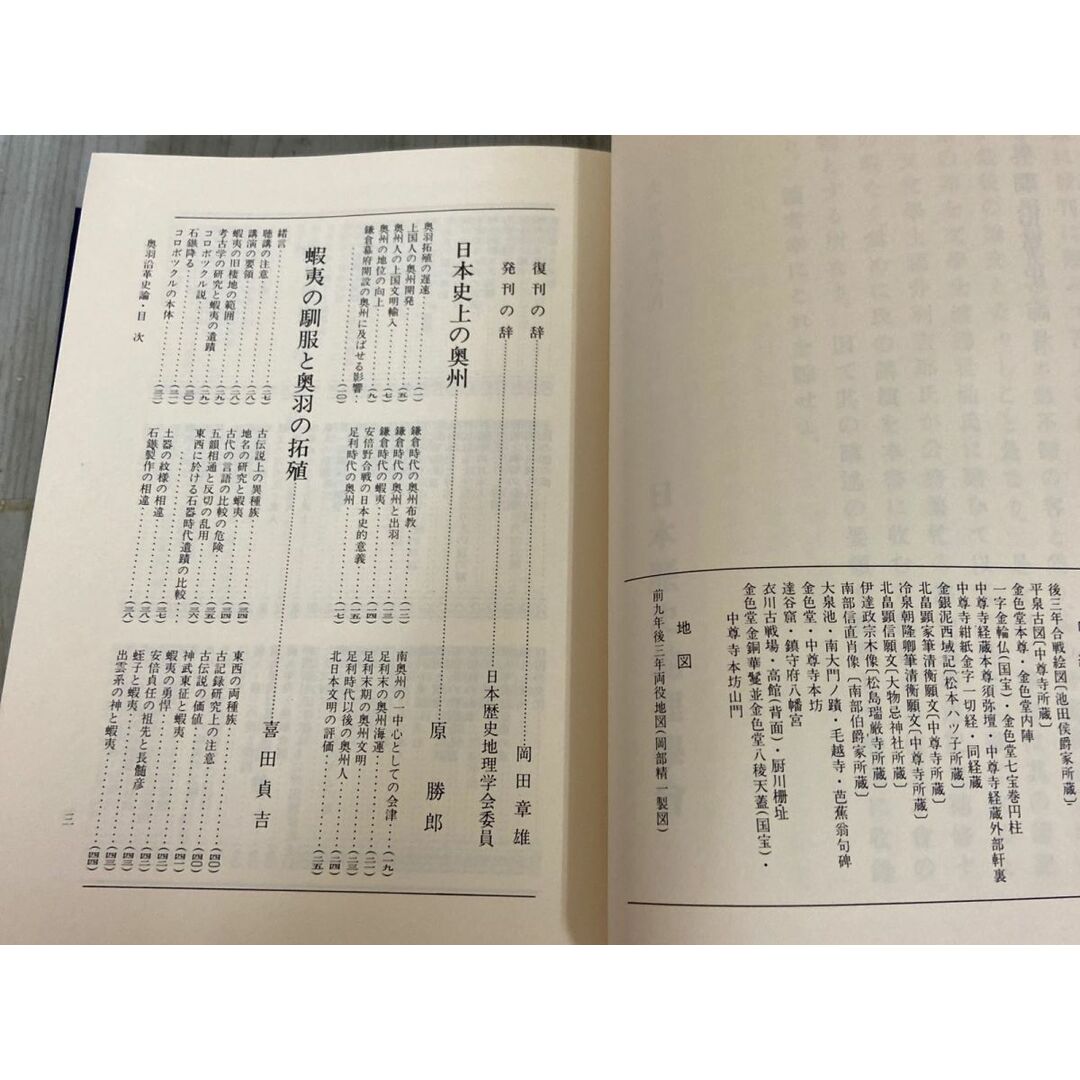 後三年合戦絵図〔池田侯爵家所蔵〕
平泉古図〔中尊寺所蔵〕
金色堂本尊・金色堂内陣
一字金輪仏(国宝)・金色堂七宝巻円柱
中尊寺経蔵本尊須弥壇・中尊寺経蔵外部軒裏
中尊寺紺紙金字一切経・同経蔵
金銀泥西域記〔松本ハツ子所蔵〕
北畠顕家筆清衡願文〔中尊寺所蔵〕
冷泉朝隆卿筆清衡願文〔中尊寺所蔵〕
北畠顕信願文〔大物忌神社所蔵〕
伊達政宗木像〔松島瑞厳寺所蔵〕
南部信直肖像〔南部伯爵家所蔵〕
大泉池・南大門ノ蹟・毛越寺・芭蕉翁句碑
金色堂・中尊寺本坊
達谷窟・鎮守府八幡宮
衣川古戦場・高館(背面)・厨川柵址
金色堂金銅華鬘並金色堂八稜天蓋(国宝)・
中尊寺本坊山門
地図
前九年後三年両役地図(岡部精一製図)
復刊の辞……岡田章雄
発刊の辞……日本歴史地理学会委員
日本史上の奥州……原勝郎
奥羽拓殖の遅速……(一)
上国人の奥州開発……(五)
奥州人の上国文明輸入……(七)
奥州の地位の向上……(九)
鎌倉幕府開設の奥州に及ばせる影響……(一〇)
鎌倉時代の奥州布教……(一一)
鎌倉時代の奥州と出羽……(一二)
鎌倉時代の蝦夷……(一三)
安倍野合戦の日本史的意義……(一四)
足利時代の奥州……(一七)
南奥州の一中心としての会津……(一九)
足利末の奥州海運……(二一)
足利末期の奥州文明……(二一)
足利時代以後の奥州人……(二三)
北日本文明の評価……(二五)
蝦夷の馴服と奥羽の拓殖……喜田貞吉
緒言……(二七)
聴講の注意……(二七)
講演の要領……(二八)
蝦夷の旧棲地の範囲……(二八)
考古学の研究と蝦夷の遺蹟……(二九)
コロボックル説……(二九)
石鏃降る……(三〇)
コロボツクルの本体……(三一)
古伝説上の異種族……(三四)
地名の研究と蝦夷……(三四)
古代の言語の比較の危険……(三五)
五韻相通と反切の乱用……(三五)
東西に於ける石器時代遺蹟の比較
……(三六)
土器の紋様の相違……(三七)
石鏃製作の相違……(三八)
東西の両種族……(四〇)
古記録研究上の注意……(四〇)
古伝説の価値……(四〇)
神武東征と蝦夷……(四一)
蝦夷の勇悍……(四二)
安倍貞任の祖先と長髄彦……(四二)
蛭子と蝦夷……(四三)
出雲系の神と蝦夷……(四四)
奥羽沿革史論・目次
三